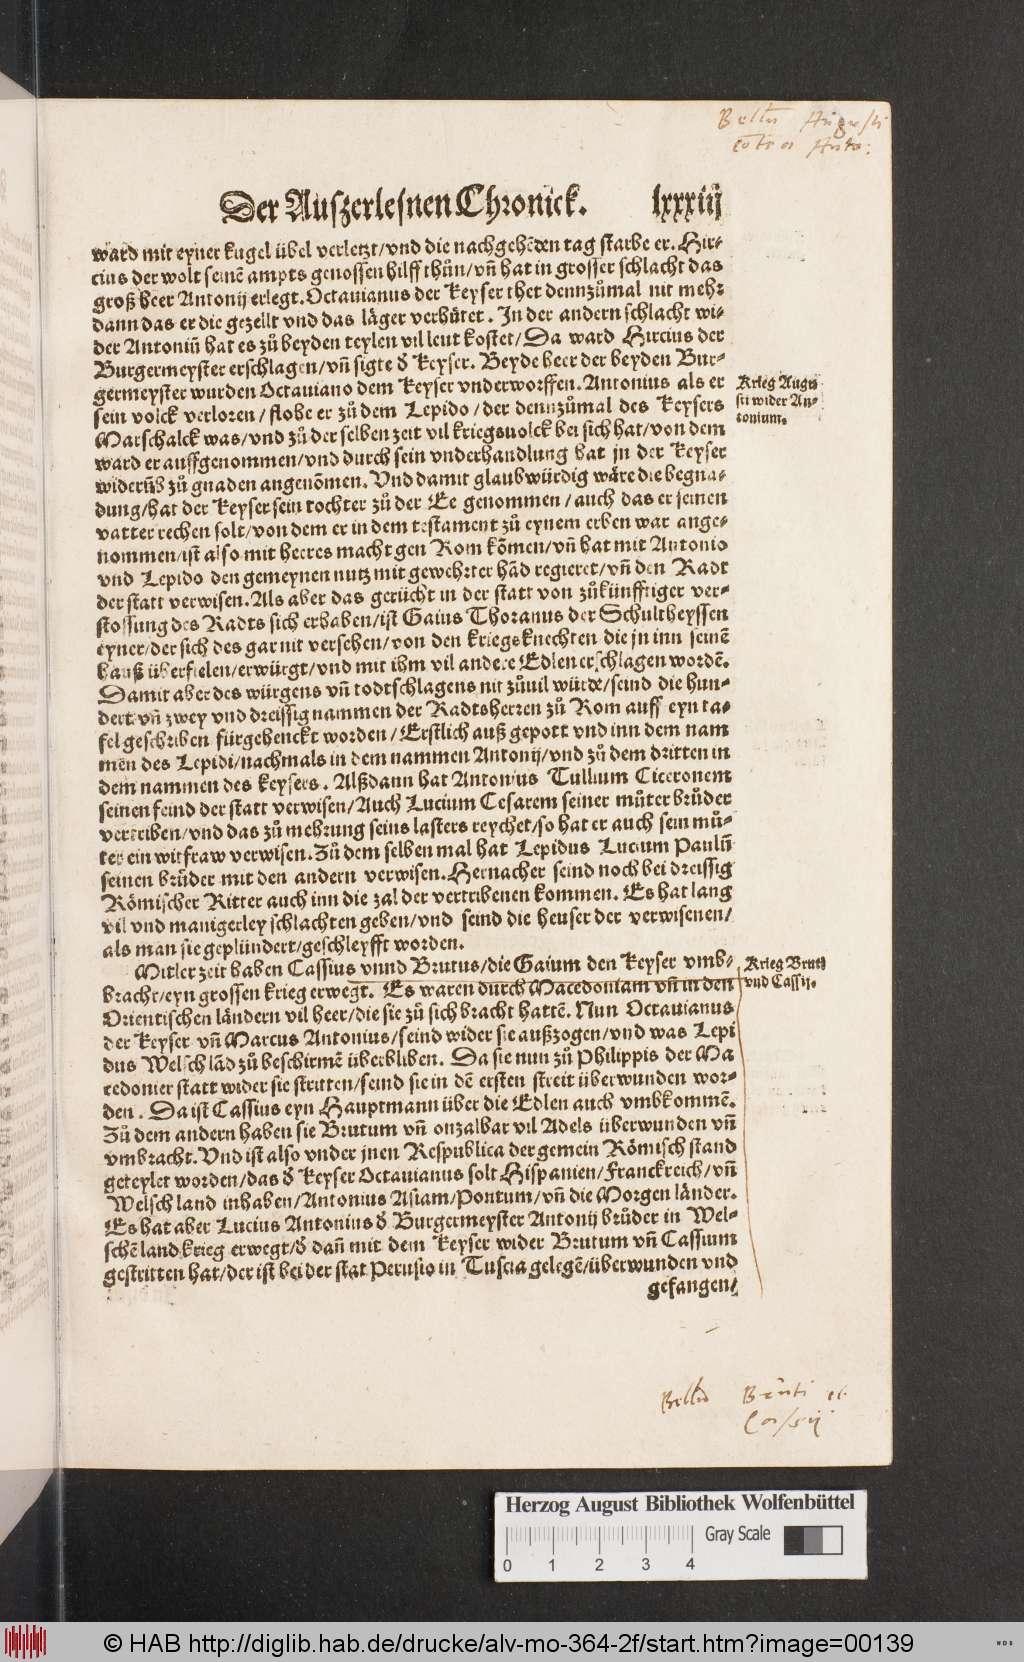 Bellū Augusti
cōtra Anto:
Der Auszerlesnen Chronick. lxxxiiij
ward mit eyner kugel übel verletzt/vnd die nachgehēden tag starbe er. Hir⸗
cius der wolt seinē ampts genossen hilff thůn/vn̄ hat in grosser schlacht das
groß heer Antonij erlegt. Octauianus der Keyser thet dennzůmal nit mehr
dann das er die gezellt vnd das läger verhütet. In der andern schlacht wi⸗
der Antoniū hat es zů beyden teylen vil leut kostet/Da ward Hircius der
Burgermeyster erschlagen/vn̄ sigte d̕ Keyser. Beyde heer der beyden Bur⸗
germeyster wurden Octauiano dem Keyser vnderworffen. Antonius als er
sein volck verloren/flohe er zů dem Lepido/der dennzůmal des Keysers
Marschalck was/vnd zů der selben zeit vil kriegsuolck bei sich hat/von dem
ward er auffgenommen/vnd durch sein vnderhandlung hat jn der Keyser
widerūb zů gnaden angenōmen. Vnd damit glaubwürdig wäre die begna⸗
dung/hat der Keyser sein tochter zů der Ee genommen/auch das er seinen
vatter rechen solt/von dem er in dem testament zů eynem erben war ange⸗
nommen/ist also mit heeres macht gen Rom kōmen/vn̄ hat mit Antonio
vnd Lepido den gemeynen nutz mit gewehrter hād regieret/vn̄ den Radt
der statt verwisen. Als aber das gerücht in der statt von zůkünfftiger ver⸗
stossung des Radts sich erhaben/ist Gaius Thoranus der Schultheyssen
eyner/der sich des gar nit versehen/von den kriegsknechten die jn inn seinē
hauß überfielen/erwürgt/vnd mit ihm vil andere Edlen erschlagen wordē.
Damit aber des würgens vn̄ todtschlagens nit zůuil würde/seind die hun⸗
dert vn̄ zwey vnd dreissig nammen der Radtsherren zů Rom auff eyn ta⸗
fel geschriben fürgehenckt worden/Erstlich auß gepott vnd inn dem nam
men des Lepidi/nachmals in dem nammen Antonij/vnd zů dem dritten in
dem nammen des Keysers. Alßdann hat Antonius Tullium Ciceronem
seinen feind der statt verwisen/Auch Lucium Cesarem seiner můter brůder
vertriben/vnd das zů mehrung seins lasters reychet/so hat er auch sein mů⸗
ter ein witfraw verwisen. Zů dem selben mal hat Lepidus Lucium Paulū
seinen brůder mit den andern verwisen. Hernacher seind noch bei dreissig
Römischer Ritter auch inn die zal der vertribenen kommen. Es hat lang
vil vnd manigerley schlachten geben/vnd seind die heuser der verwisenen/
als man sie geplündert/geschleyfft worden.
Mitler zeit haben Cassius vnnd Brutus/die Gaium den Keyser vmb⸗
bracht/eyn grossen krieg erwegt. Es waren durch Macedoniam vn̄ in den
Orientischen ländern vil heer/die sie zů sich bracht hattē. Nun Octauianus
der Keyser vn̄ Marcus Antonius/seind wider sie außzogen/vnd was Lepi
dus Welsch lād zů beschirmē überbliben. Da sie nun zů Philippis der Ma
cedonier statt wider sie stritten/seind sie in dē ersten streit überwunden wor⸗
den. Da ist Cassius eyn Hauptmann über die Edlen auch vmbkommē.
Zů dem andern haben sie Brutum vn̄ onzalbar vil Adels überwunden vn̄
vmbracht. Vnd ist also vnder jnen Respublica der gemein Römisch stand
geteylet worden/das d̕ Keyser Octauianus solt Hispanien/Franckreich/vn̄
Welsch land inhaben/Antonius Asiam/Pontum/vn̄ die Morgen länder.
Es hat aber Lucius Antonius d̕ Burgermeyster Antonij brůder in Wel⸗
schē land krieg erwegt/d̕ dan̄ mit dem Keyser wider Brutum vn̄ Cassium
gestritten hat/der ist bei der stat Perusio in Tuscia gelegē/überwunden vnd
gefangen/
Krieg Augu
sti wider An⸗
tonium.
Krieg Bruti
vnd Cassij.
Bellū Bruti et
Cassij
Herzog August Bibliothek Wolfenbüttel
Gray Scale
0 1 2 3 4
© HAB http://diglib.hab.de/drucke/alv-mo-364-2f/start.htm?image=00139